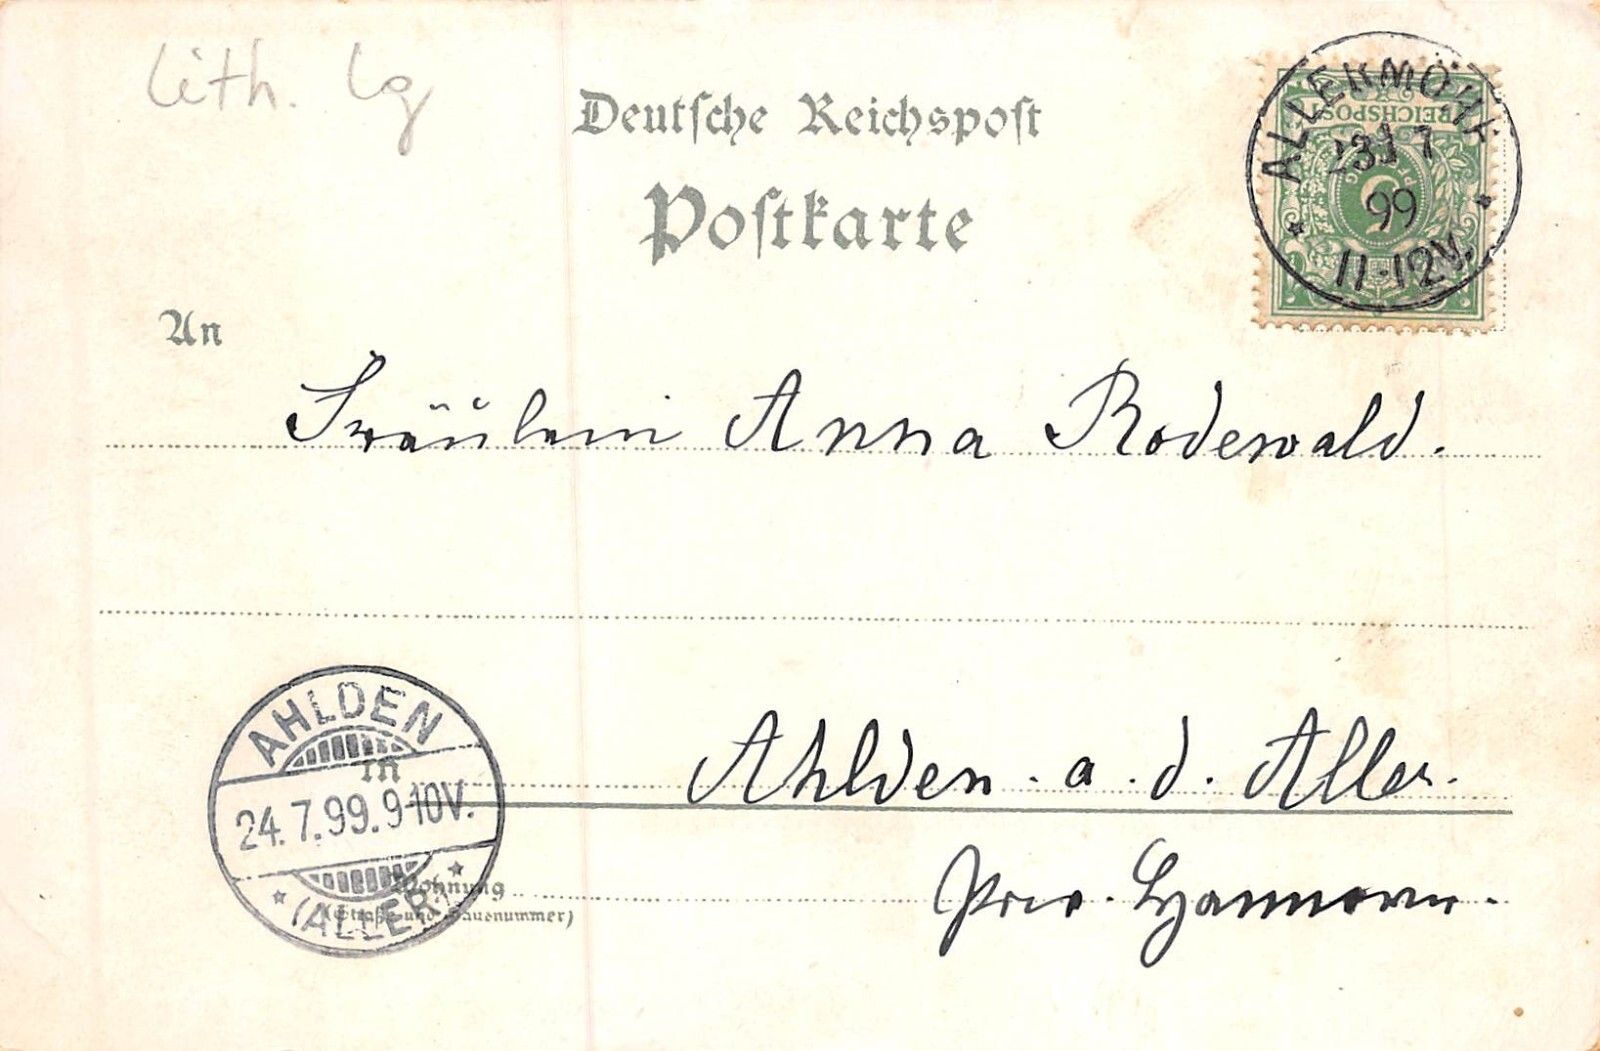 Lith. Lg
Deutsche Reichspost
Postkarte
ALLERMÖHE
REICHSPOST
23 7
99
11-12V.
5
An
Fräulein Anna Rodewald.
AHLDEN
in
24.7.99.9-10V.
(ALLER)
Ahlden. a. d. Aller.
Wohnung
(Straße und Hausnummer)
Prov. Hannover.